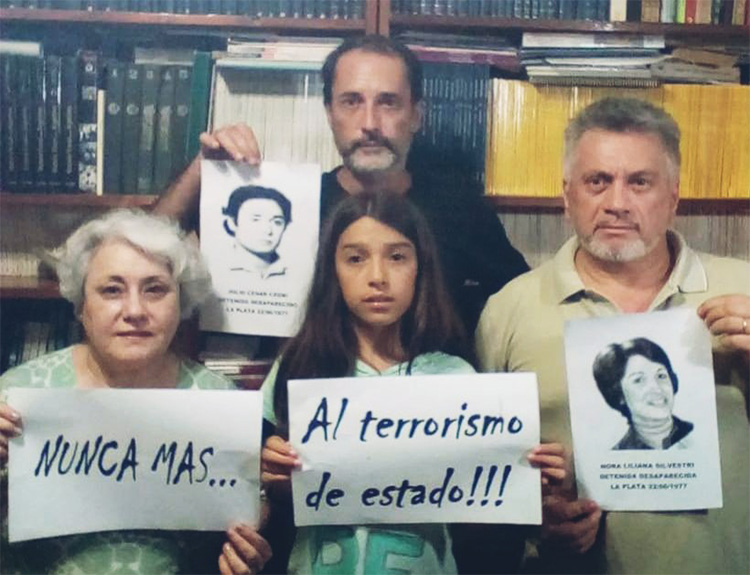 JULIO CESAR CEDRI
DETENIDA DESAPARECIDA
LA PLATA 22/06/1977
NUNCA MAS...
Al terrorismo
de estado!!!
NORA LILIANA SILVESTRI
DETENIDA DESAPARECIDA
LA PLATA 22/06/1977